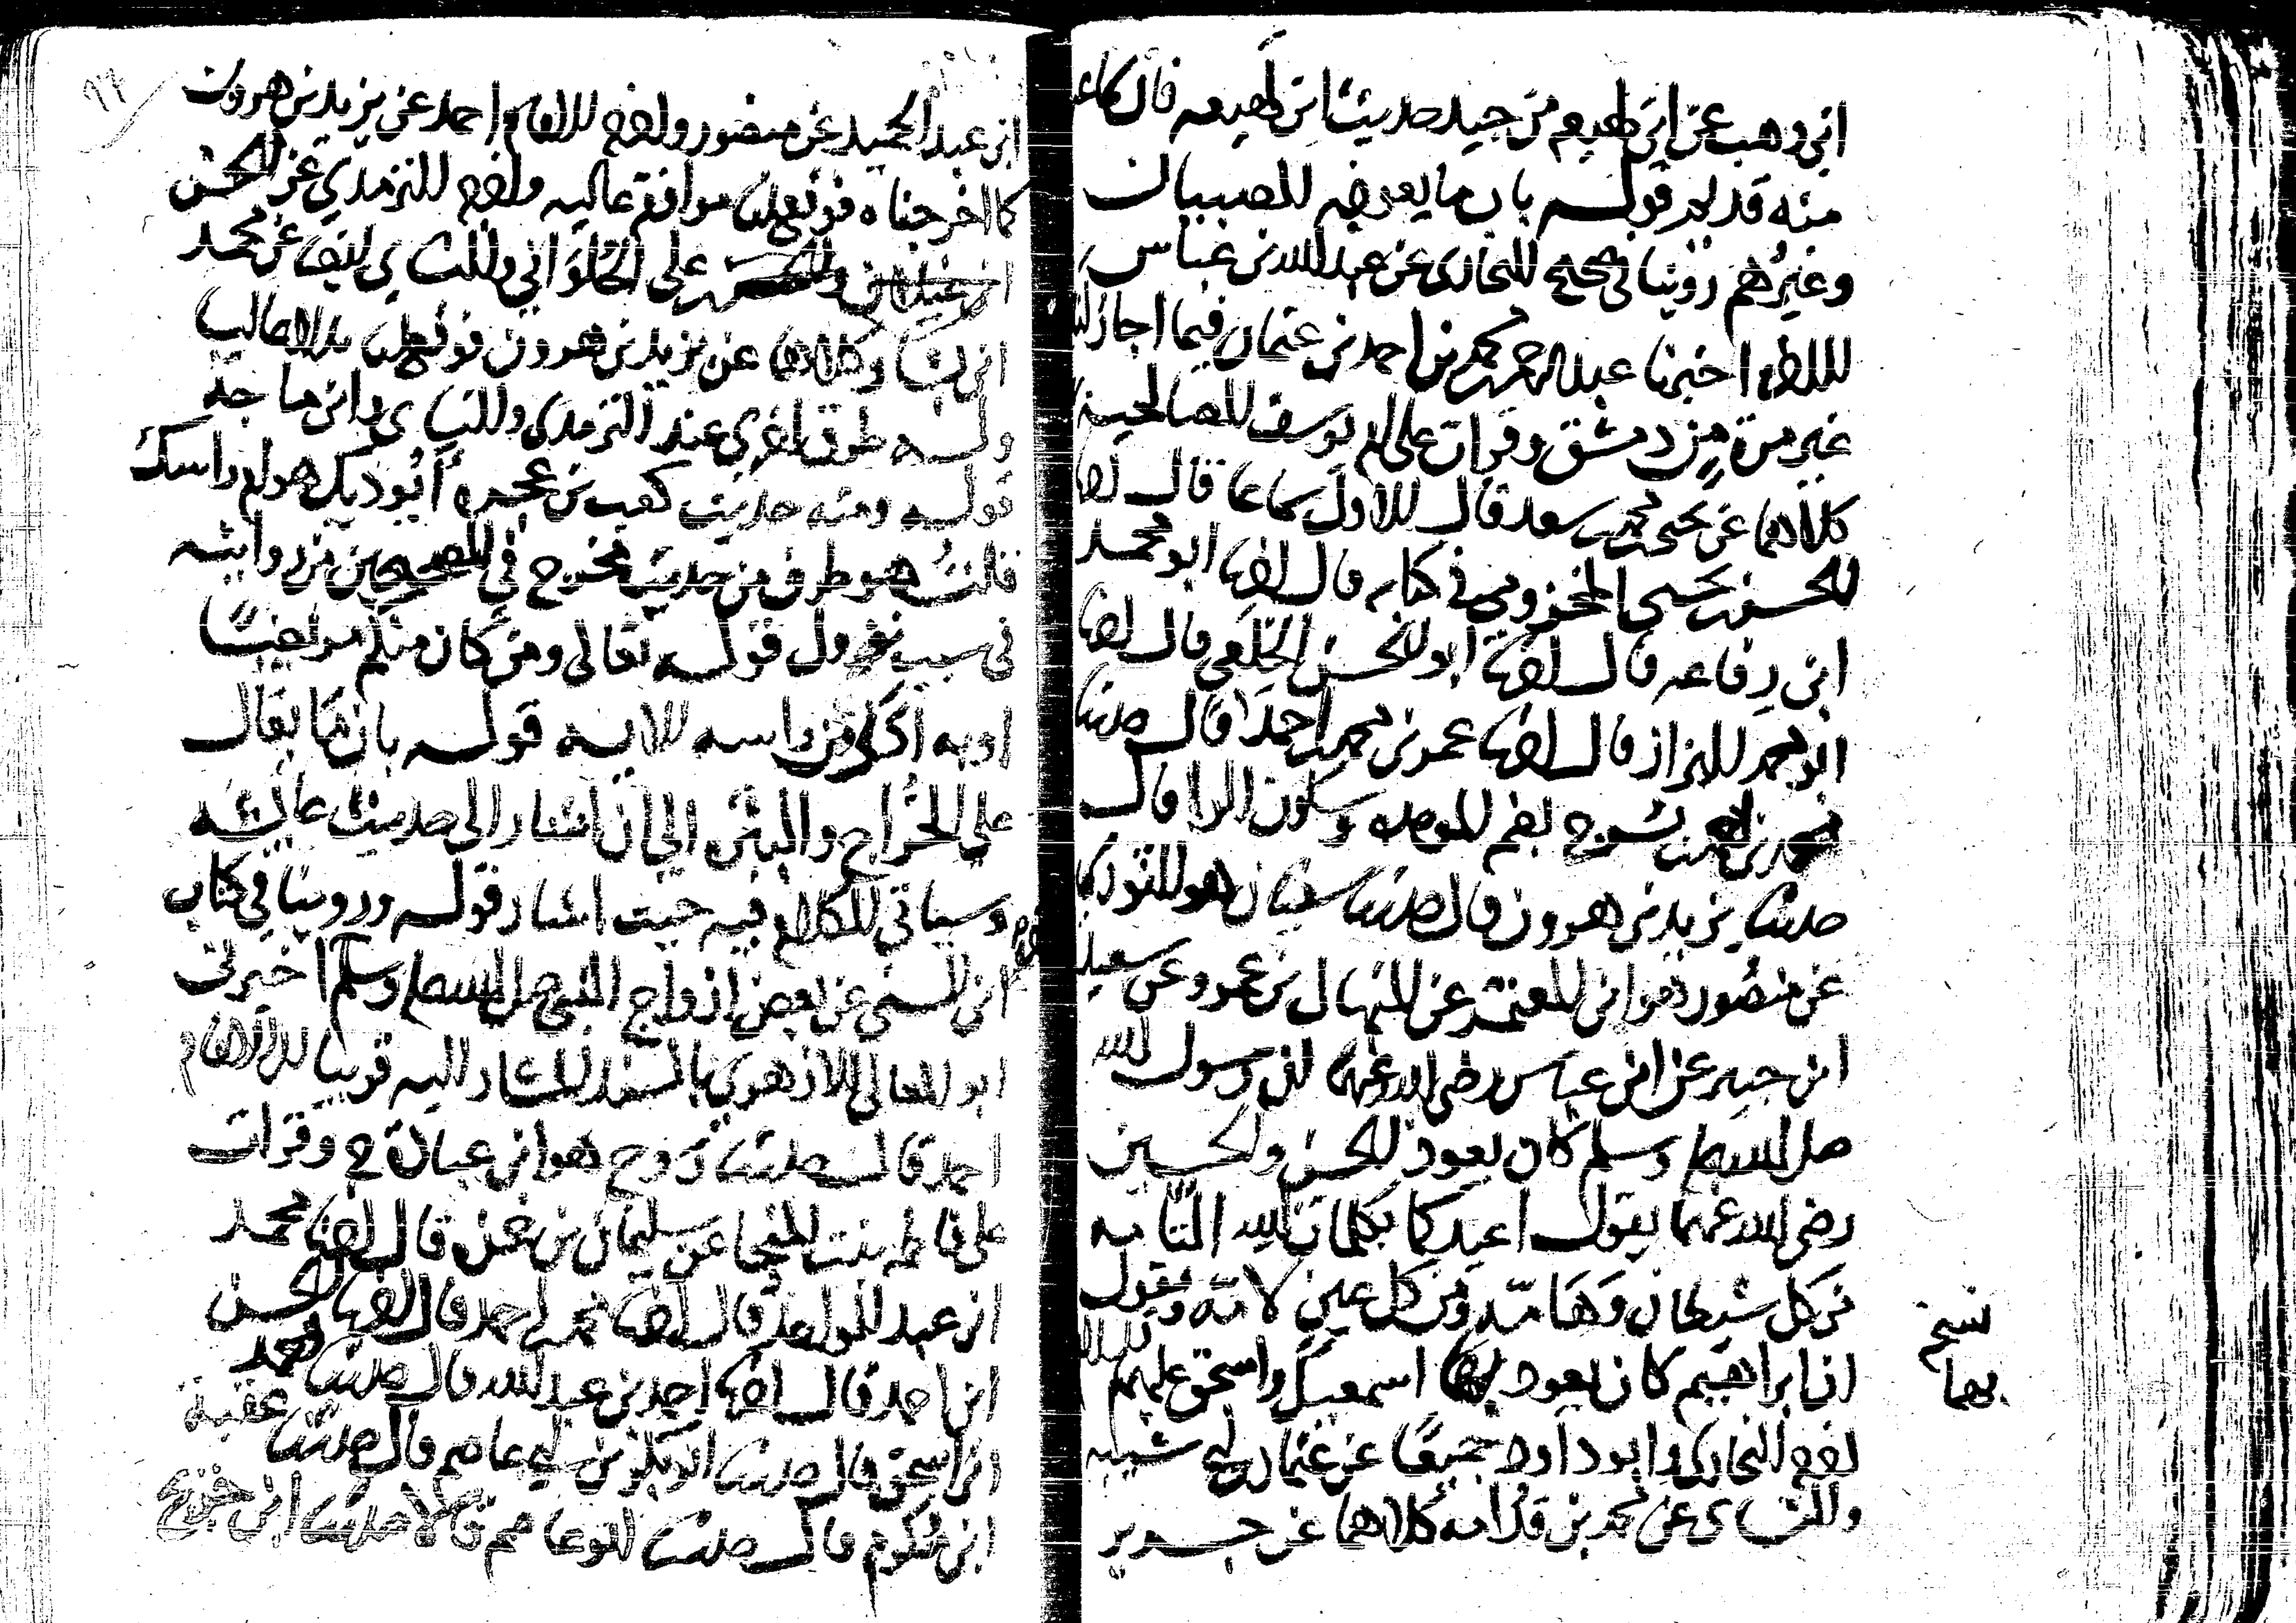 ابن وهب عن ابن لهيعه من جيد حديث ابن لهيعه قال كما
منه قد لم قوله باب ما يعوذ به الصبيان
وغيرهم روينا في صحيح البخاري عن عبد الله بن عباس
اخبرنا عبد الرحمن بن احمد بن عثمان فيما اجاز لنا
غير مرة من دمشق وقرات على ام يوسف الصالحية
كلاهما عن يحيى بن محمد بن سعد قال الاول سماعا قال انا
الحسن بن يحيى المخزومي في كتابه قال انا ابو محمد
ابن رفاعه قال انا ابو الحسن الخلعي قال انا
ابو محمد البزاز قال انا عمر بن محمد بن احمد قال حدثنا
محمد بن سرح بضم المهمله وسكون الرا قال
حدثنا يزيد بن هرون قال حدثنا سفيان هو الثوري
عن منصور هو ابن المعتمر عن المنهال بن عمرو عن سعيد
ابن جبير عن ابن عباس رضي الله عنهما ان رسول الله
صلى الله عليه وسلم كان يعوذ الحسن والحسين
رضي الله عنهما يقول اعيذكما بكلمات الله التامه
من كل شيطان وهامة ومن كل عين لامة ويقول
ان ابراهيم كان يعوذ بها اسمعيل واسحق عليهم السلام
اخرجه البخاري وابو داود جميعا عن عثمان بن ابي شيبه
والنساي عن محمد بن قدامه كلاهما عن جرير
نسخ
بهما
ابن عبد الحميد عن منصور واخرجه الامام احمد عن يزيد بن هرون
كما اخرجناه فوقع لنا موافقة عاليه واخرجه الترمذي عن الحسن
ابن علي الحلواني والنساي ايضا عن محمد
كلاهما عن يزيد بن هرون فوقع لنا بدلا عاليا
وله طرق اخرى عند الترمذي والنساي وابن ماجه
قوله ومنه حديث كعب بن عجره ايوذيك هوام راسك
قلت هو طرف من حديث مخرج في الصحيحين من روايته
في سبب نزول قوله تعالى ومن كان منكم مريضا
او به اذى من راسه الايه قوله باب ما يقال
على الخراج والبثر الى ان اشار الى حديث عايشه
وسياتي الكلام فيه حيث اشار قوله وروينا في كتاب
ابن السني عن بعض ازواج النبي صلى الله عليه وسلم اخبرني
ابو المعالي الازهري بالسند المشار اليه قريبا الى الامام
احمد قال حدثنا روح هو ابن عبادة ح وقرات
على فاطمه بنت المنجا عن سليمان بن حمزه قال انا محمد
ابن عبد الواحد قال انا محمد بن احمد قال انا الحسن
ابن احمد قال انا احمد بن عبد الله قال حدثنا احمد
ابن اسحق قال حدثنا ابو بكر بن ابي عاصم قال حدثنا عقبة
ابن مكرم قال حدثنا ابو عاصم قالا حدثنا ابن جريج